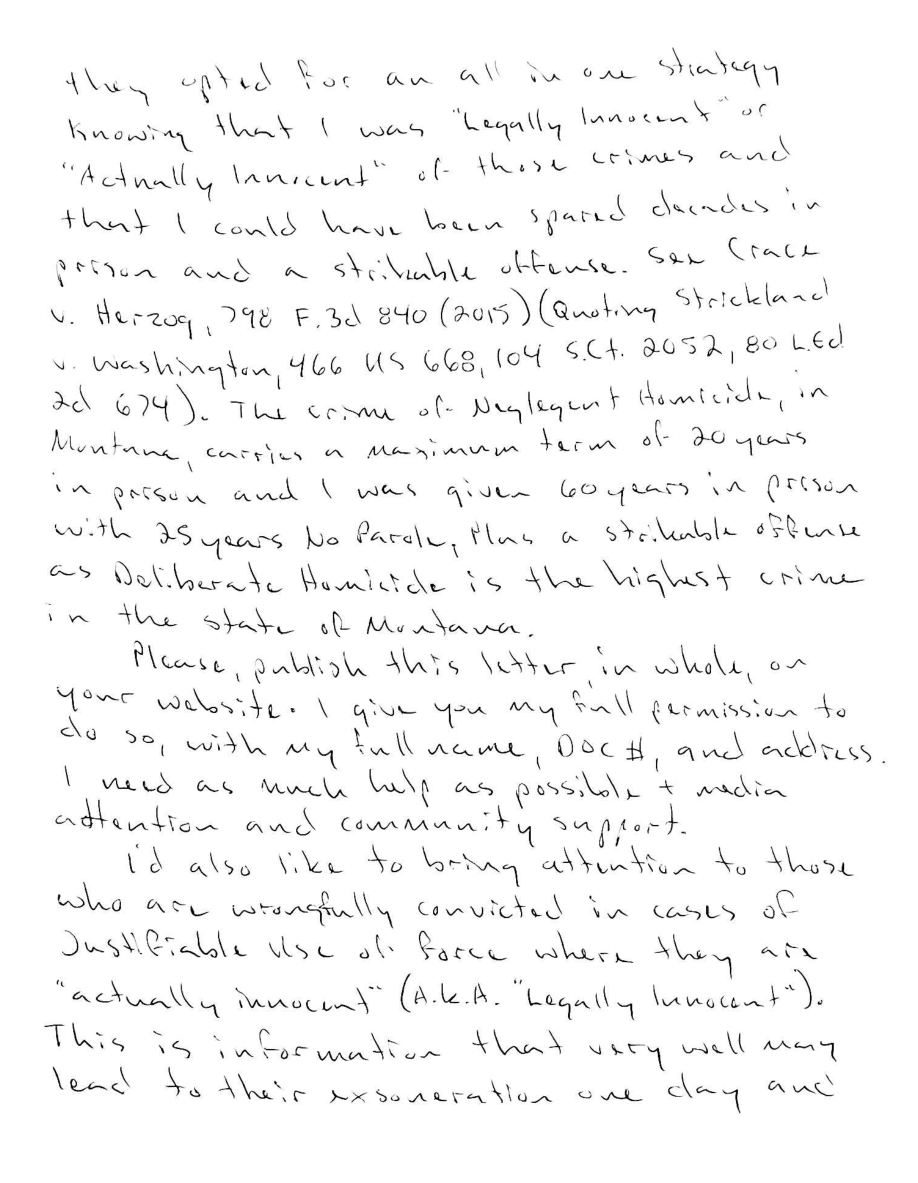 they opted for an all in one strategy
knowing that I was "Legally Innocent" or
"Actually Innicent" of those crimes and
that I could have been spared decades in
prison and a strikable offense. See Crace
v. Herzog, 798 F.3d 840 (2015) (Quoting Strickland
v. Washington, 466 US 668, 104 S.Ct. 2052, 80 L.Ed
2d 674). The crime of Neglegent Homicide, in
Montana, carries a maximum term of 20 years
in prison and I was given 60 years in prison
with 25 years No Parole, Plus a strikable offense
as Deliberate Homicide is the highest crime
in the state of Montana.
Please, publish this letter, in whole, on
your website. I give you my full permission to
do so, with my full name, DOC #, and address.
I need as much help as possible + media
attention and community support.
I'd also like to bring attention to those
who are wrongfully convicted in cases of
Justifiable Use of Force where they are
"actually innocent" (A.k.A. "Legally Innocent").
This is information that very well may
lead to their exsoneration one day and